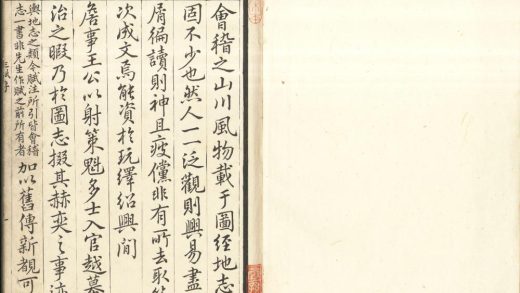 會稽之山川風物載于圖經地志
固不少也然人一一泛觀則興易盡
屑徧讀則神且疲儻非有所去取
次成文焉能資於玩繹紹興間
詹事王公以射策魁多士入官越幕
治之暇乃於圖志掇其赫奕之事迹
輿地志之類今賦注所引皆會稽
志一書非先生作賦之前所有者
加以舊傳新覩可